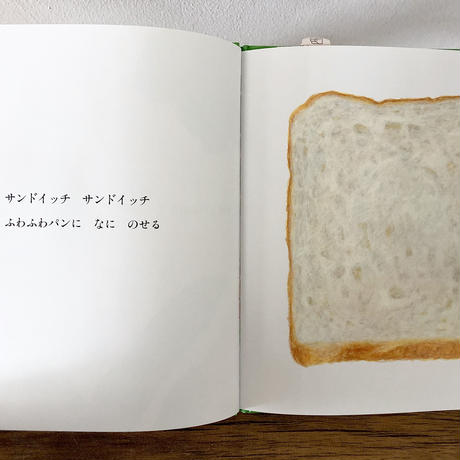 サンドイッチ　サンドイッチ
ふわふわパンに　なに　のせる